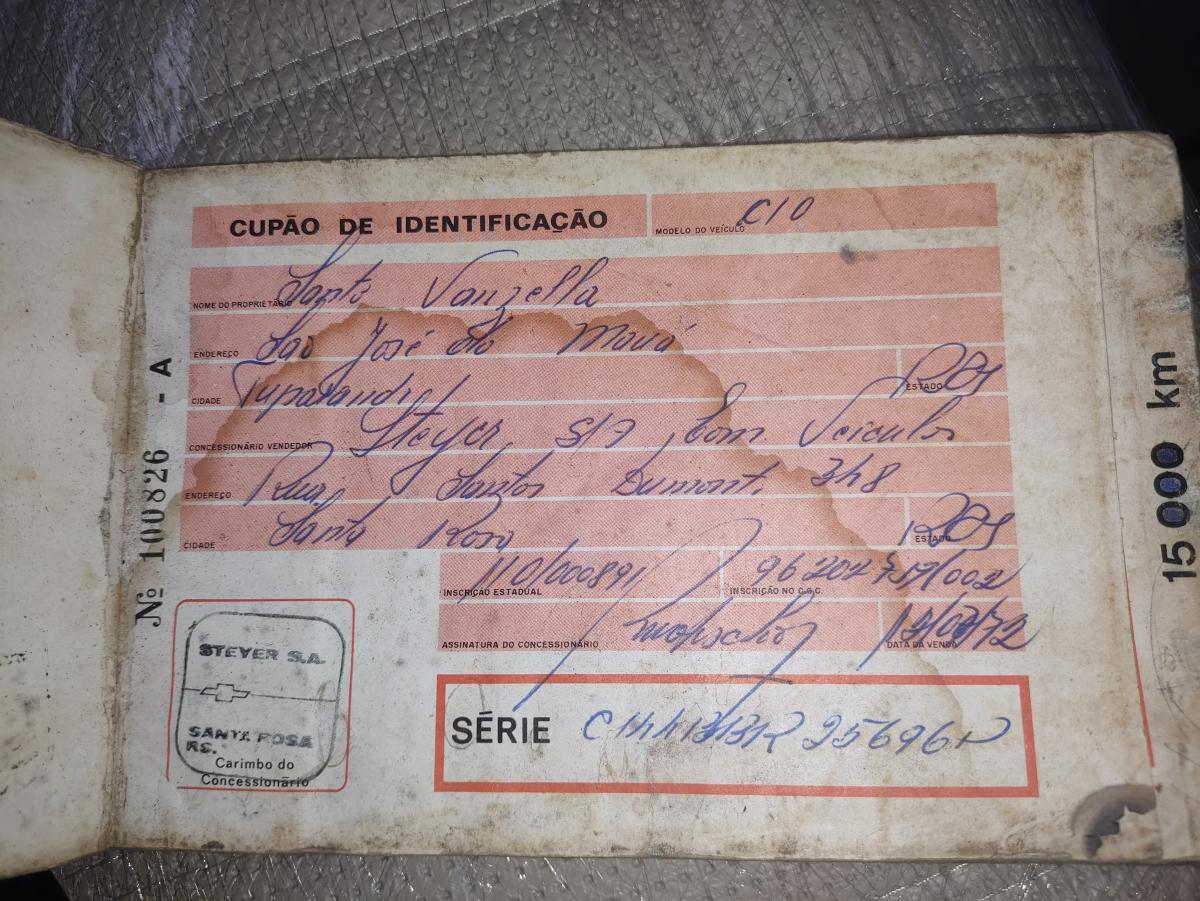 CUPÃO DE IDENTIFICAÇÃO
MODELO DO VEÍCULO C10
NOME DO PROPRIETÁRIO Santo Vanzella
ENDEREÇO São José do Mauá
CIDADE Tuparandi ESTADO RGS
CONCESSIONÁRIO VENDEDOR Steyer, S/A, Com. Veiculos
ENDEREÇO Rua, Santos Dumont. 348
CIDADE Santa Rosa ESTADO RGS
INSCRIÇÃO ESTADUAL 110/000891 INSCRIÇÃO NO C.G.C.
ASSINATURA DO CONCESSIONÁRIO DATA DA VENDA
SÉRIE
STEYER S.A.
SANTA ROSA
RS.
Carimbo do
Concessionário
Nº 100826 - A
15 000 km